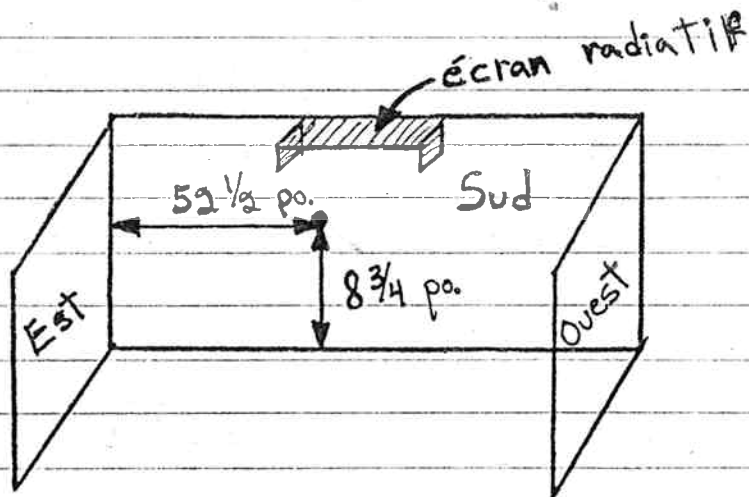 écran radiatif
52 1/2 po.
Sud
8 3/4 po.
Est
Ouest